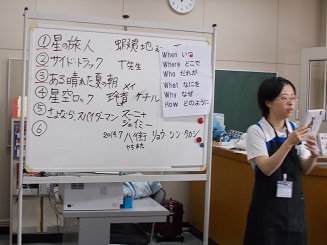 ① 星の旅人 蝦夷地
② サイド・トラック T先生
③ ある晴れた夏の朝 メイ
④ 星空ロック 玲音 ケチル
⑤ さよなら、スパイダーマン スーニャ
ジェイミー
⑥
2019.7 八街 リュウ シン ケロン
When いつ
Where どこで
Who だれが
What なにを
Why なぜ
How どのように